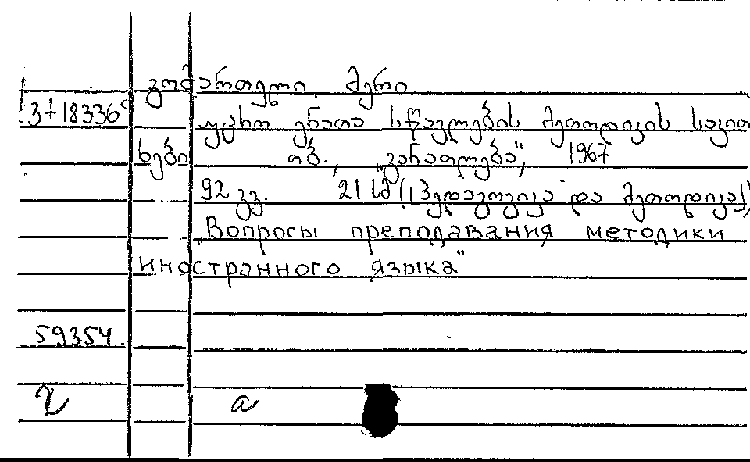 გომართელი. მერი
3+18336
უცხო ენათა სწავლების მეთოდიკის საკით
ხები თბ., "განათლება", 1967
92 გვ. 21 სმ (პედაგოგიკა და მეთოდიკა)
"Вопросы преподавания методики
иностранного языка"
59354.
a